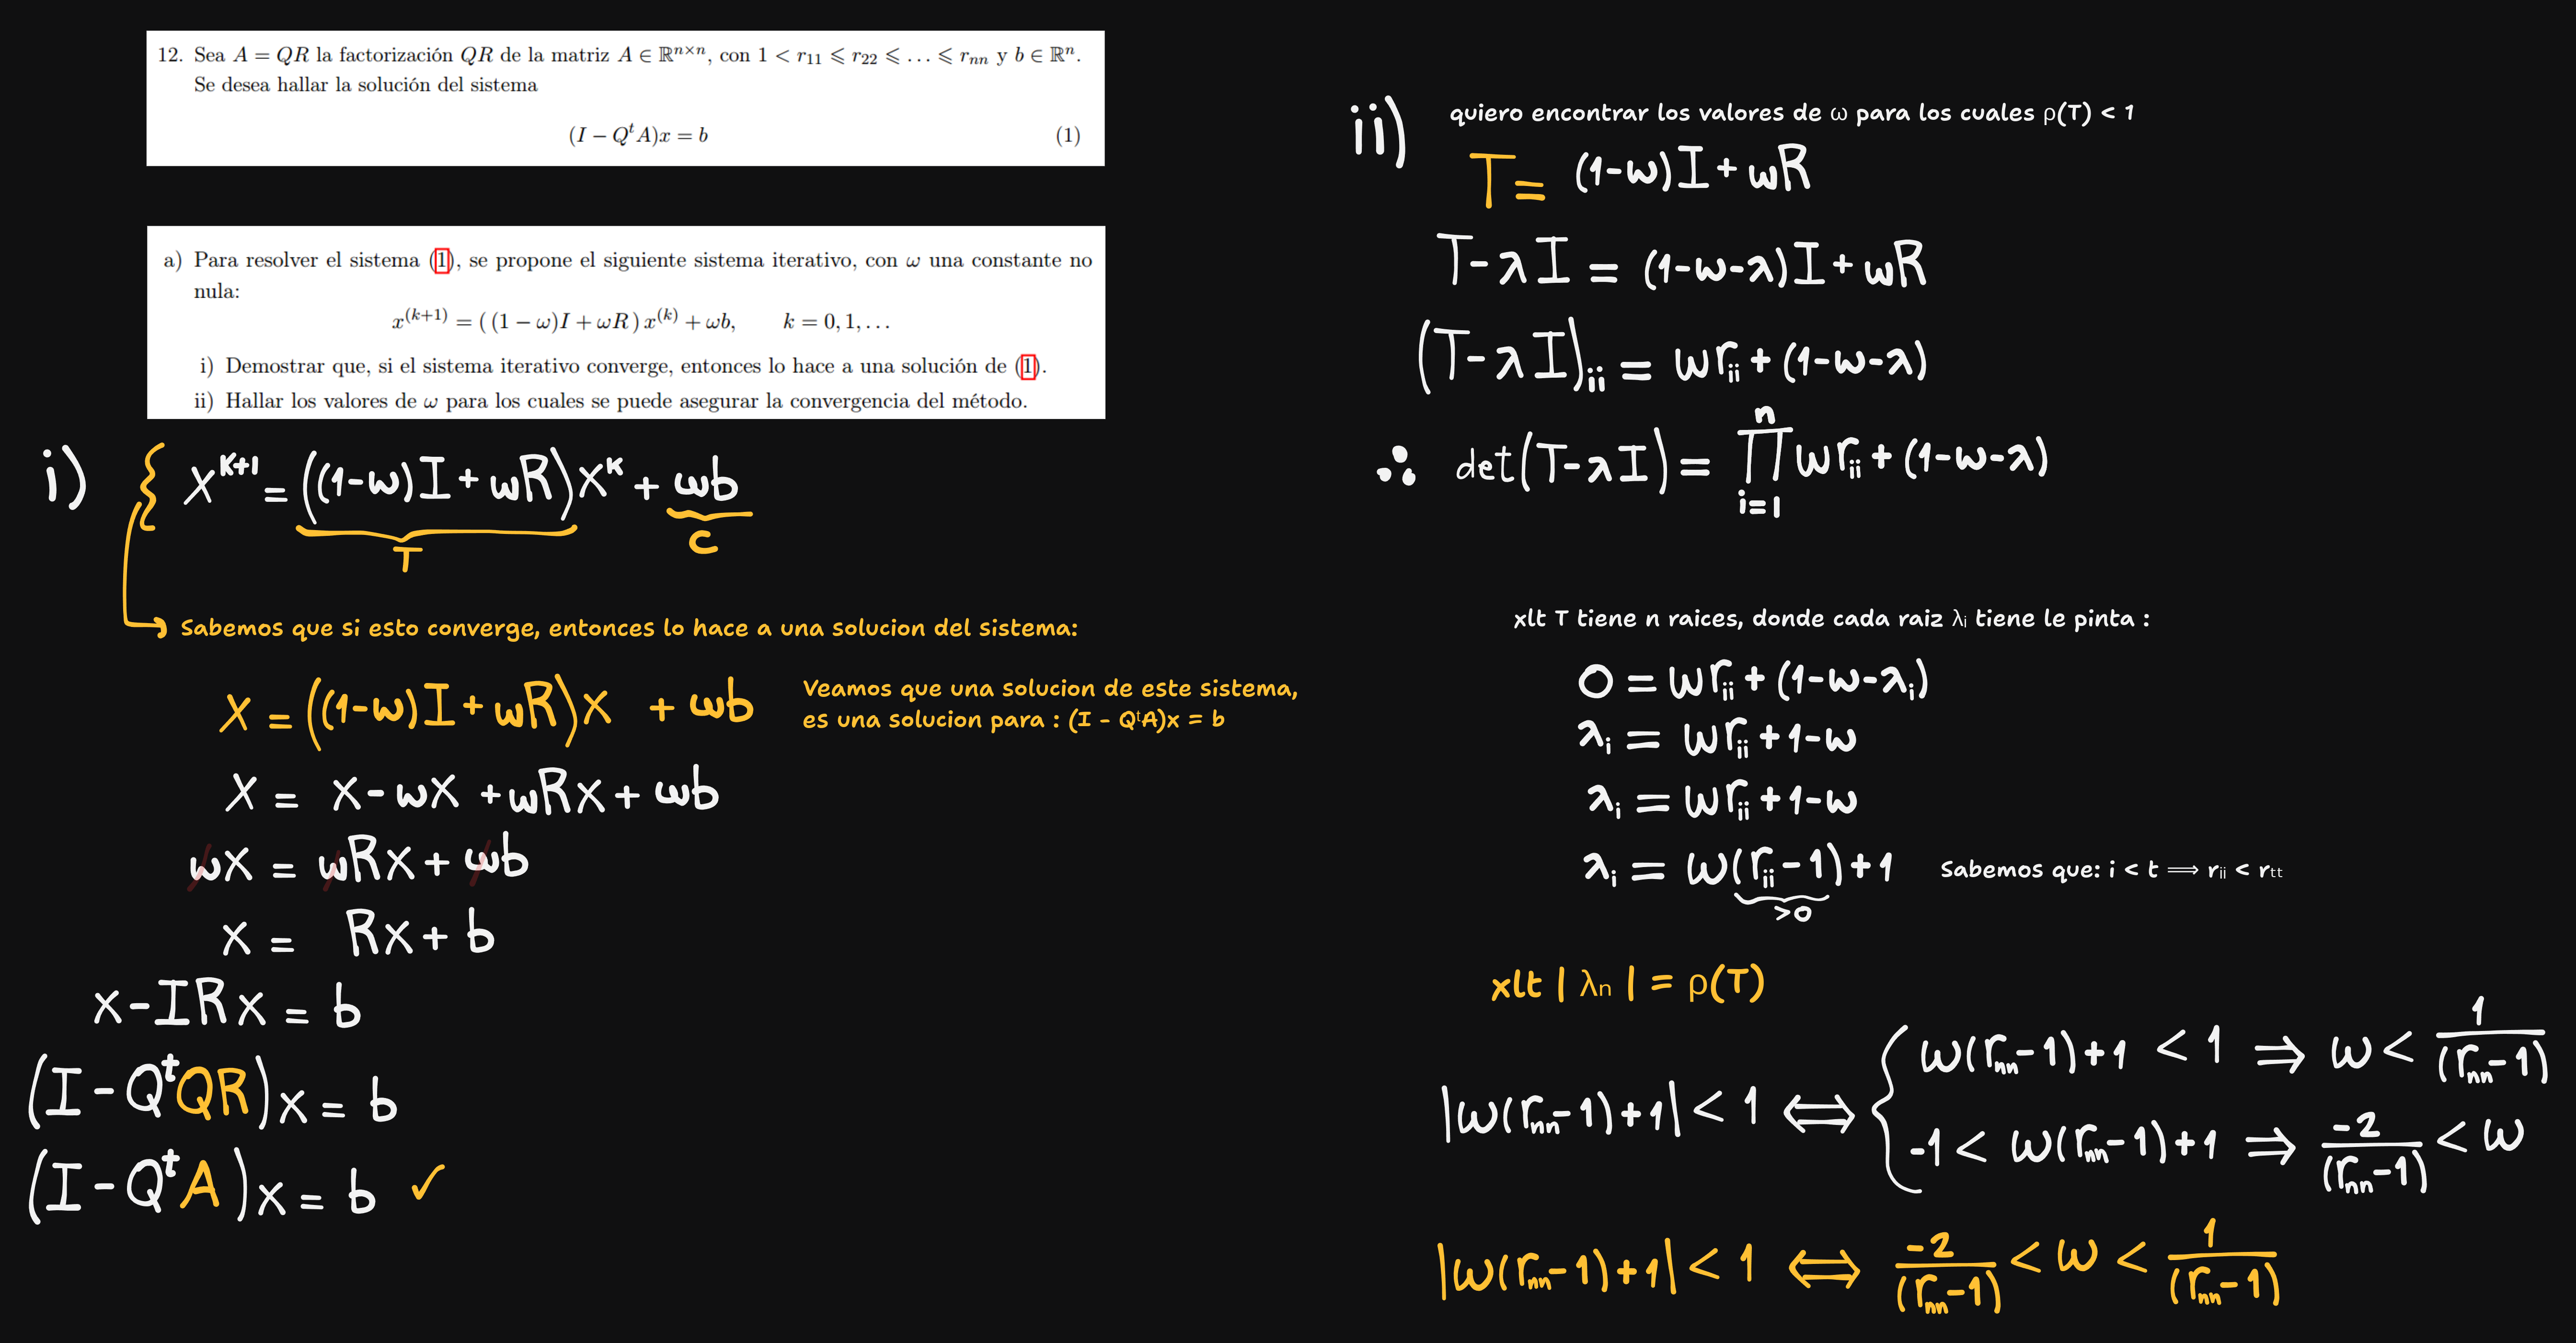 12. Sea A = QR la factorización QR de la matriz A ∈ ℝⁿˣⁿ, con 1 < r₁₁ ⩽ r₂₂ ⩽ ... ⩽ rₙₙ y b ∈ ℝⁿ.
Se desea hallar la solución del sistema
(I − QᵗA)x = b (1)
a) Para resolver el sistema (1), se propone el siguiente sistema iterativo, con ω una constante no
nula:
x⁽ᵏ⁺¹⁾ = ( (1 − ω)I + ωR ) x⁽ᵏ⁾ + ωb, k = 0, 1, ...
i) Demostrar que, si el sistema iterativo converge, entonces lo hace a una solución de (1).
ii) Hallar los valores de ω para los cuales se puede asegurar la convergencia del método.
i) { X^{K+1} = ((1-ω)I + ωR)X^K + ωb
T C
Sabemos que si esto converge, entonces lo hace a una solucion del sistema:
X = ((1-ω)I + ωR)X + ωb
Veamos que una solucion de este sistema,
es una solucion para : (I - QᵗA)x = b
X = X - ωX + ωRX + ωb
ωX = ωRX + ωb
X = RX + b
X - IRX = b
(I - QᵗQR)X = b
(I - QᵗA)X = b ✓
ii) quiero encontrar los valores de ω para los cuales ρ(T) < 1
T = (1-ω)I + ωR
T - λI = (1-ω-λ)I + ωR
(T - λI)ᵢᵢ = ωrᵢᵢ + (1-ω-λ)
∴ det(T - λI) = ∏_{i=1}^{n} ωrᵢᵢ + (1-ω-λ)
xlt T tiene n raices, donde cada raiz λᵢ tiene le pinta :
0 = ωrᵢᵢ + (1-ω-λᵢ)
λᵢ = ωrᵢᵢ + 1-ω
λᵢ = ωrᵢᵢ + 1-ω
λᵢ = ω(rᵢᵢ - 1) + 1 Sabemos que: i < t ⟹ rᵢᵢ < rₜₜ
>0
xlt | λₙ | = ρ(T)
|ω(rₙₙ - 1) + 1| < 1 ⟺ { ω(rₙₙ - 1) + 1 < 1 ⇒ ω < 1/(rₙₙ - 1)
-1 < ω(rₙₙ - 1) + 1 ⇒ -2/(rₙₙ - 1) < ω
|ω(rₙₙ - 1) + 1| < 1 ⟺ -2/(rₙₙ - 1) < ω < 1/(rₙₙ - 1)